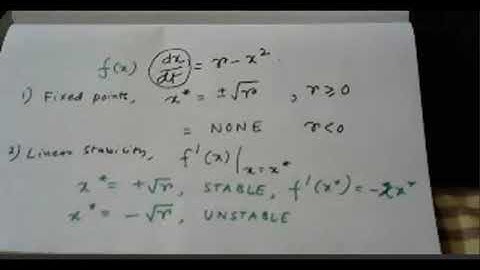 f(x) dx/dt = r - x²
1) Fixed points, x* = ±√r , r ≥ 0
= NONE r < 0
2) Linear stability, f'(x)|x=x*
x* = +√r, STABLE, f'(x*) = -2x*
x* = -√r, UNSTABLE